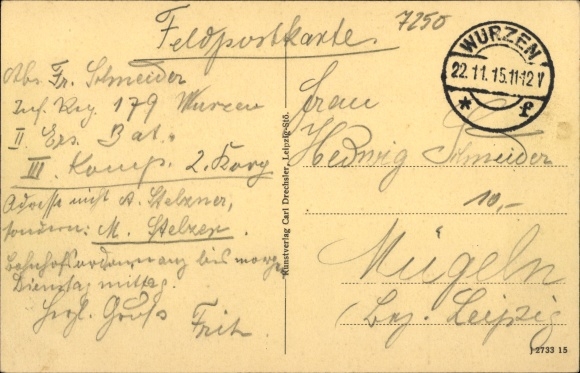 Feldpostkarte.
7250
WURZEN
22.11.15.11-12V
* f
Abs. Fr. Schneider
Inf. Reg. 179 Wurzen
II. Ers. Bat.
III. Komp. 2. Korp
Adresse nicht A. Stelzner,
sondern: M. Stelzer.
bis morgen
Dienstag mittag.
Herzl. Gruß
Fritz
Kunstverlag Carl Drechsler, Leipzig-Stö.
Frau
Hedwig Schneider
10,-
Mügeln
Bez. Leipzig
J 2733 15